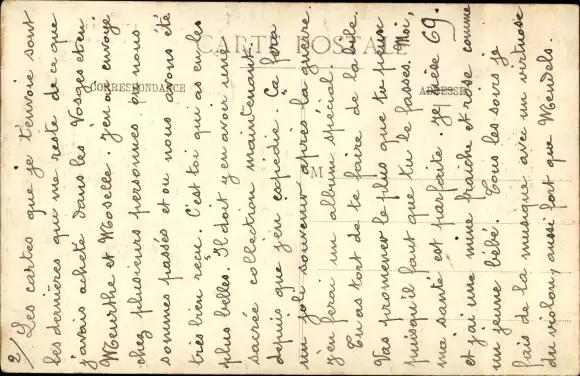 CARTE POSTALE
CORRESPONDANCE
ADRESSE
M
2/ Les cartes que je t'envoie sont
les dernières qui me reste de ce que
j'avais acheté dans les Vosges et en
Meurthe et Moselle. J'en ai envoyé
chez plusieurs personnes où nous
sommes passés et où nous avons été
très bien reçu. C'est toi qui as eu les
plus belles. Il doit y en avoir une
sacrée collection maintenant
depuis que j'en expédie. Ça fera
un joli souvenir après la guerre.
J'en ferai un album spécial.
Tu as tort de te faire de la bile.
Vas promener le plus que tu peux
puisqu'il faut que tu le fasses. Moi,
ma santé est parfaite. Je pèse 69.
et j'ai une mine fraîche et rose comme
un jeune bébé. Tous les soirs je
fais de la musique avec un virtuose
du violon, aussi fort que Mendels.